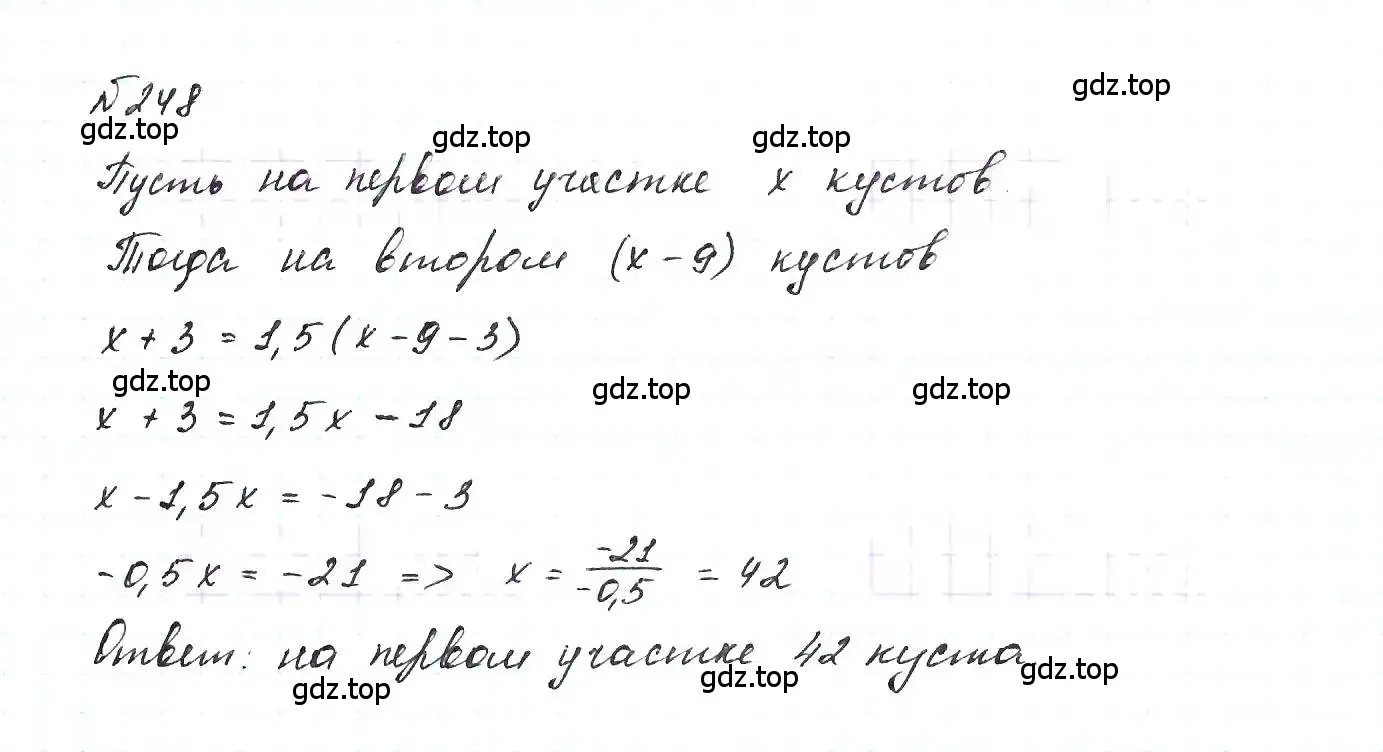 №248
gdz.top
gdz.top gdz.top gdz.top
Пусть на первом участке x кустов
Тогда на втором (x - 9) кустов
x + 3 = 1,5 (x - 9 - 3)
gdz.top gdz.top gdz.top
x + 3 = 1,5x - 18
x - 1,5x = -18 - 3
-0,5x = -21 => x = -21/-0,5 = 42
Ответ: на первом участке 42 куста
gdz.top gdz.top gdz.top